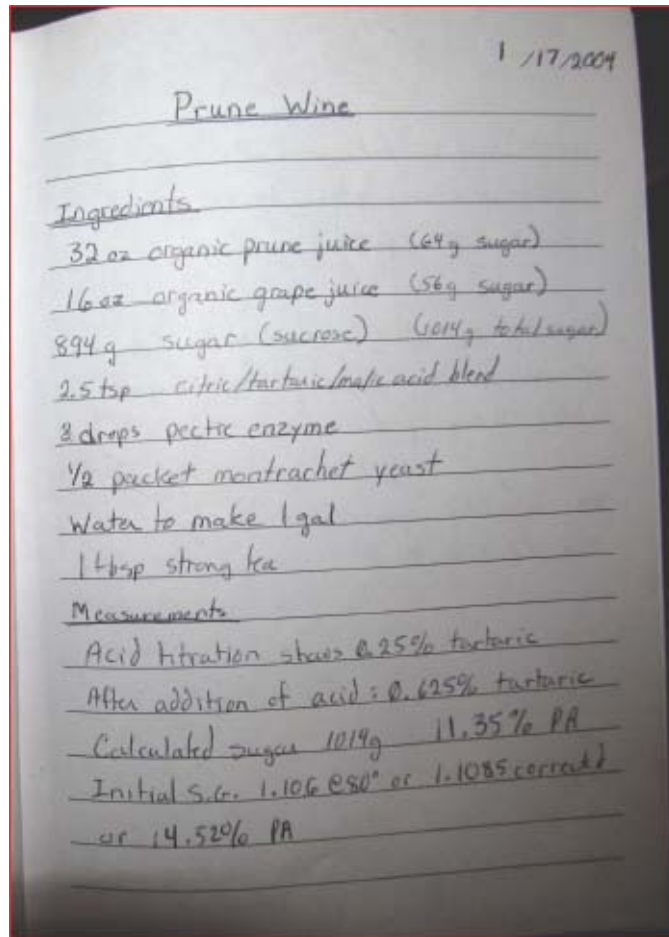 1/17/2004
Prune Wine
Ingredients
32 oz organic prune juice (64g sugar)
16 oz organic grape juice (56g sugar)
894g sugar (sucrose) (1014g total sugar)
2.5 tsp citric/tartaric/malic acid blend
3 drops pectic enzyme
1/2 packet montrachet yeast
Water to make 1 gal
1 tbsp strong tea
Measurements
Acid titration shows 0.25% tartaric
After addition of acid: 0.625% tartaric
Calculated sugar 1014g 11.35% PA
Initial S.G. 1.106 @80° or 1.1085 corrected
or 14.52% PA